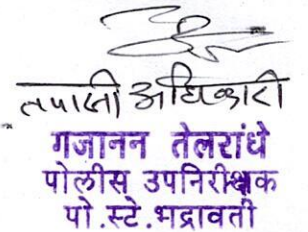 तपासी अधिकारी
गजानन तेलरांधे
पोलीस उपनिरीक्षक
पो.स्टे.भद्रावती